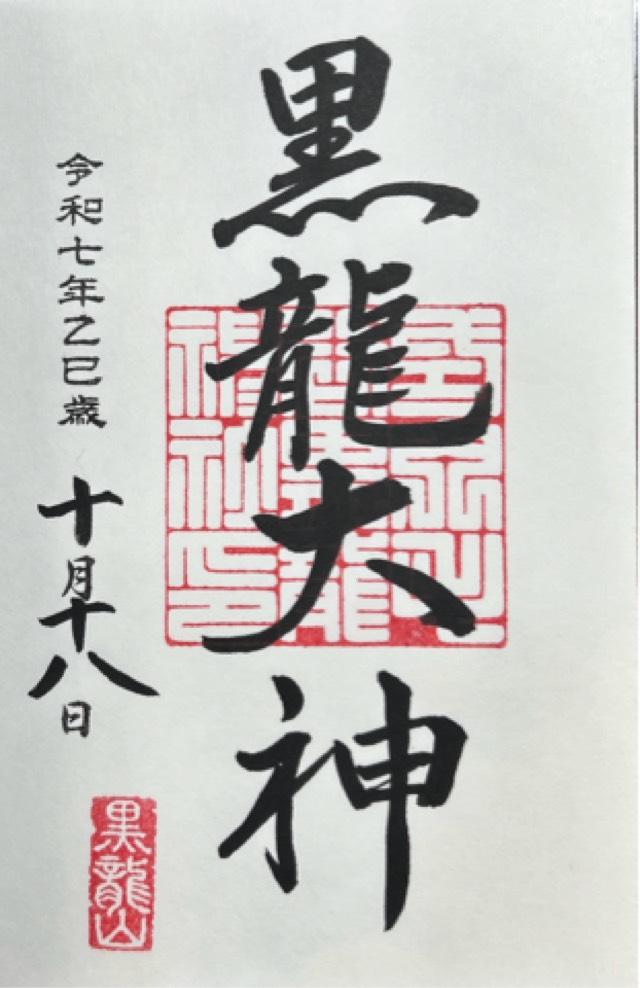 黒龍大神
令和七年乙巳歳
十月十八日
黒龍山